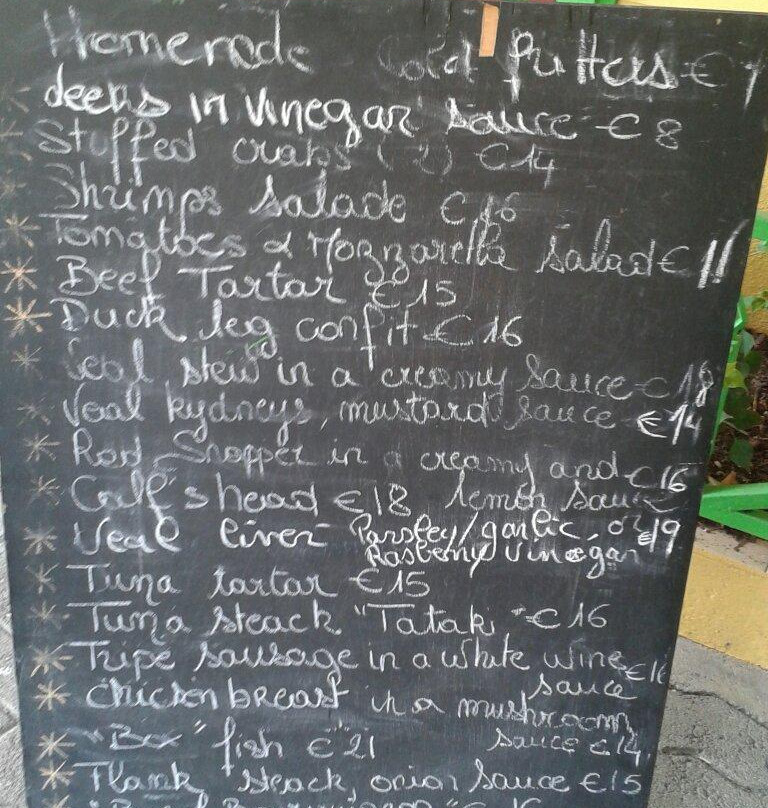 Homemade Cod fritters € 7
deeks in vinegar sauce € 8
Stuffed crabs (2) € 14
Shrimps salade € 16
Tomatoes & Mozzarella salad € 11
Beef Tartar € 15
Duck leg confit € 16
Veal stew in a creamy sauce € 18
Veal kydneys, mustard sauce € 14
Red Snapper in a creamy and € 16
Calf's head € 18 lemon sauce
Veal liver Parsley/garlic, or € 19
Rasberry vinegar
Tuna tartar € 15
Tuna steack "Tatak" € 16
Tripe sausage in a white wine € 16
sauce
chicken breast in a mushroom
"Box" fish € 21 sauce € 14
Flank steack, onion sauce € 15